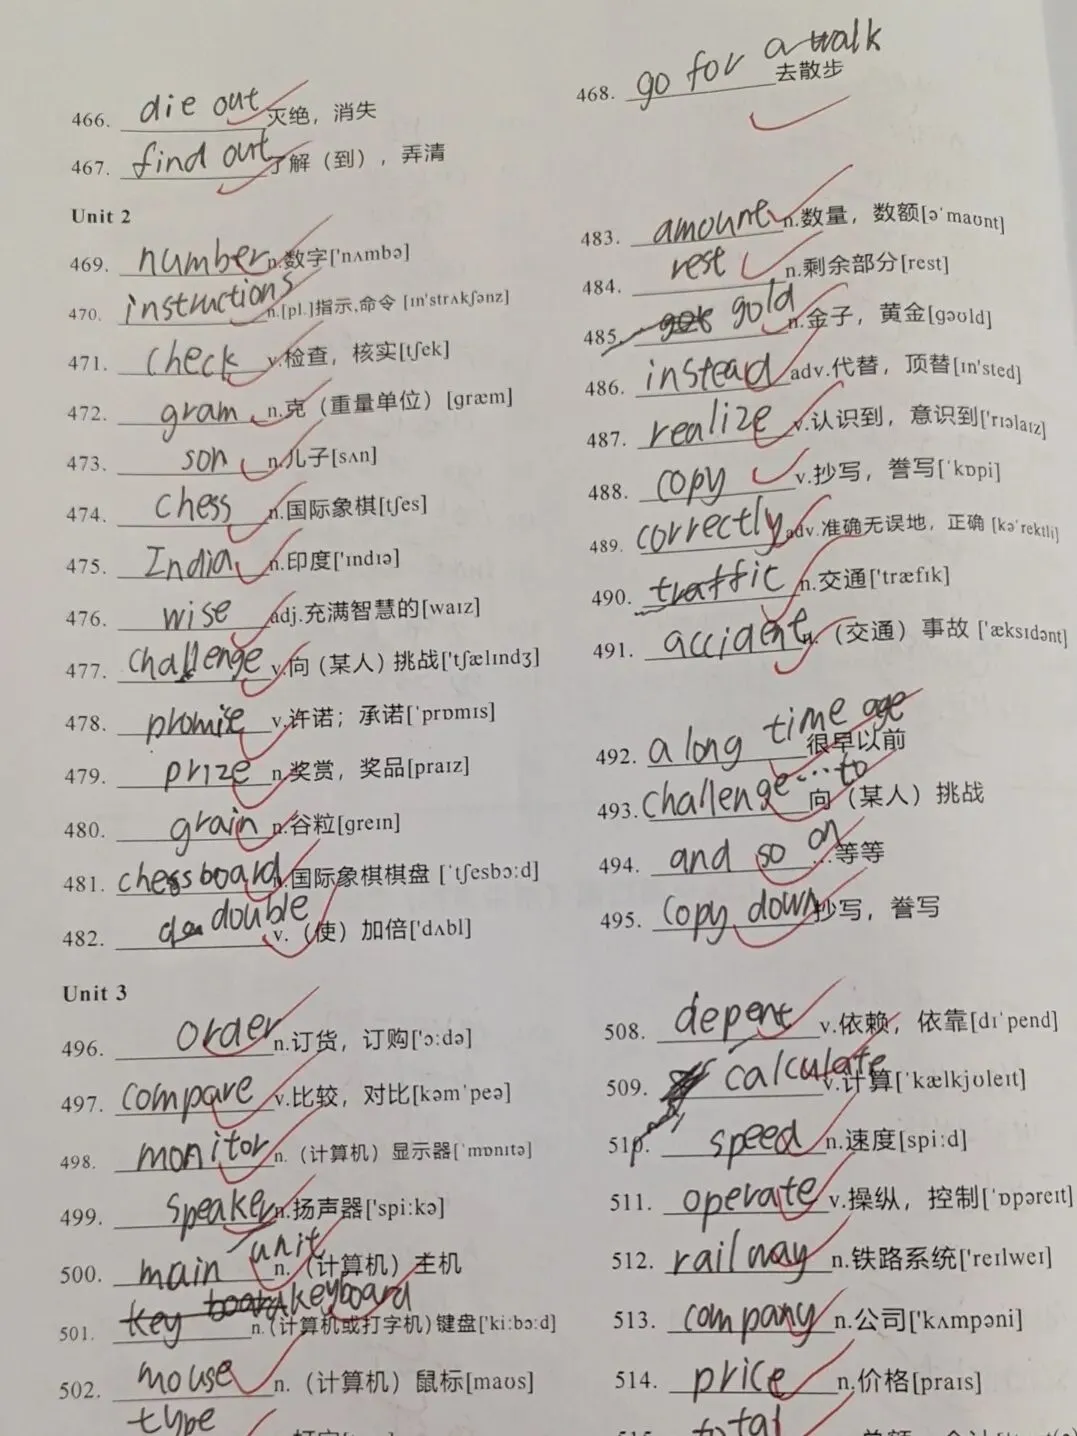 466. die out 灭绝，消失
467. find out 了解（到），弄清
468. go for a walk 去散步
Unit 2
469. number n.数字['nʌmbə]
470. instructions n.[pl.]指示,命令 [ɪn'strʌkʃənz]
471. check v.检查，核实[tʃek]
472. gram n.克（重量单位）[ɡræm]
473. son n.儿子[sʌn]
474. chess n.国际象棋[tʃes]
475. India n.印度['ɪndɪə]
476. wise adj.充满智慧的[waɪz]
477. challenge v.向（某人）挑战['tʃælɪndʒ]
478. promise v.许诺；承诺['prɒmɪs]
479. prize n.奖赏，奖品[praɪz]
480. grain n.谷粒[ɡreɪn]
481. chessboard n.国际象棋棋盘 ['tʃesbɔːd]
482. double v.（使）加倍['dʌbl]
483. amount n.数量，数额[ə'maʊnt]
484. rest n.剩余部分[rest]
485. gold n.金子，黄金[ɡəʊld]
486. instead adv.代替，顶替[ɪn'sted]
487. realize v.认识到，意识到['rɪəlaɪz]
488. copy v.抄写，誊写['kɒpi]
489. correctly adv.准确无误地，正确 [kə'rektli]
490. traffic n.交通['træfɪk]
491. accident n.（交通）事故 ['æksɪdənt]
492. a long time age 很早以前
493. challenge…to 向（某人）挑战
494. and so on …等等
495. copy down 抄写，誊写
Unit 3
496. order n.订货，订购['ɔːdə]
497. compare v.比较，对比[kəm'peə]
498. monitor n.（计算机）显示器['mɒnɪtə]
499. speaker n.扬声器['spiːkə]
500. main unit n.（计算机）主机
501. key board keyboard n.(计算机或打字机)键盘['kiːbɔːd]
502. mouse n.（计算机）鼠标[maʊs]
type
508. depent v.依赖，依靠[dɪ'pend]
509. calculate v.计算['kælkjʊleɪt]
510. speed n.速度[spiːd]
511. operate v.操纵，控制['ɒpəreɪt]
512. railway n.铁路系统['reɪlweɪ]
513. company n.公司['kʌmpəni]
514. price n.价格[praɪs]
total